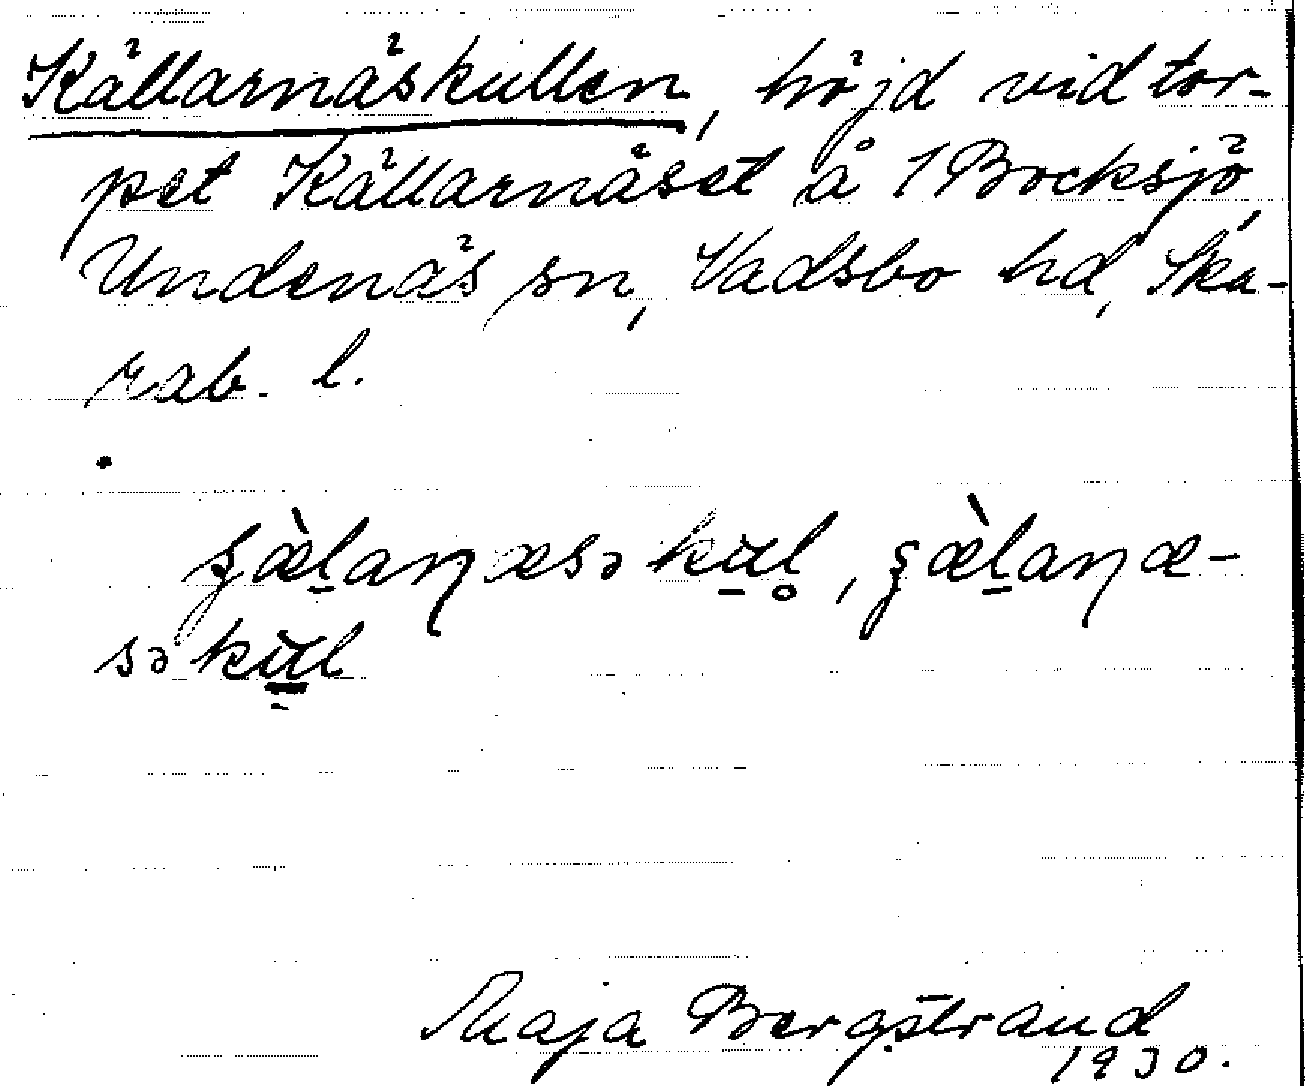 Källarnäskullen, höjd vid tor-
pet Källarnäset å 1 Bocksjö,
Undenäs sn, Vadsbo hd, Ska-
rab. l.
Maja Bergstrand
1930.